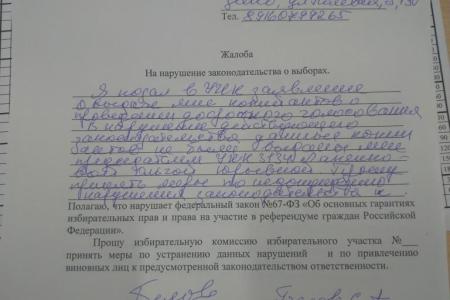 Тел. 89160799265
Жалоба
На нарушение законодательства о выборах.
Я подал в УИК заявление
о выдаче мне
проведении досрочного голосования
В нарушение действующего
законодательства данные копии
не были выданы мне
председателем УИК 3134
Юрьевной Прошу
принять меры по недопущению
нарушения законодательства
Полагаю, что нарушает федеральный закон №67-ФЗ «Об основных гарантиях
избирательных прав и права на участие в референдуме граждан Российской
Федерации».
Прошу избирательную комиссию избирательного участка №___
принять меры по устранению данных нарушений и по привлечению
виновных лиц к предусмотренной законодательством ответственности.